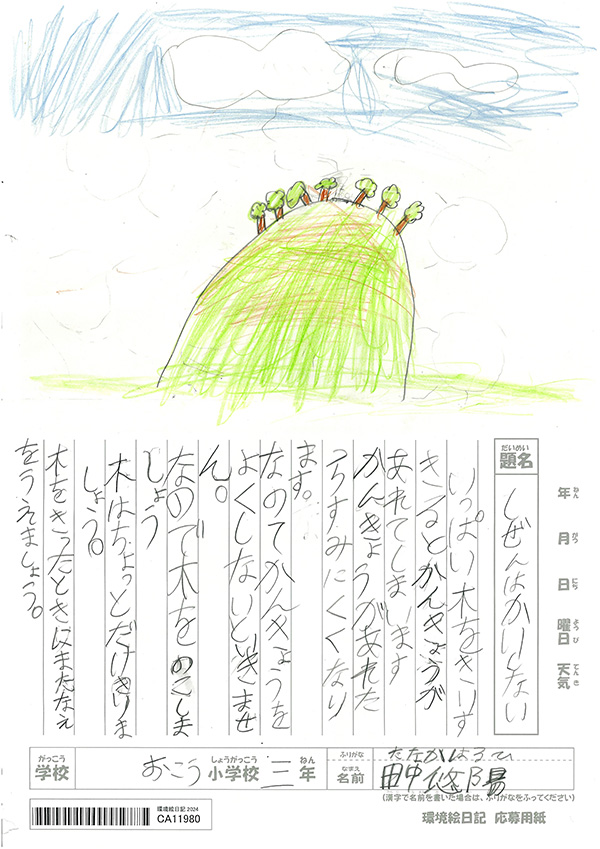 題名 だいめい
しぜんはかりしない
年 ねん 月 がつ 日 にち 曜日 ようび 天気 てんき
いっぱい木をきりす
きるとかんきょうが
あれてしまいます
かんきょうがあれた
らすみにくくなり
ます。
なのでかんきょうを
よくしないといきませ
ん。
なので木をのこしま
しょう
木はちょっとだけきりま
しょう。
木をきったときにまたなえ
をうえましょう。
がっこう 学校 おこう 小学校 しょうがっこう 三 年 ねん
ふりがな たなかはるひ
なまえ 名前 田中悠陽
(漢字で名前を書いた場合は、ふりがなをふってください)
環境絵日記 2024
CA11980
環境絵日記 応募用紙